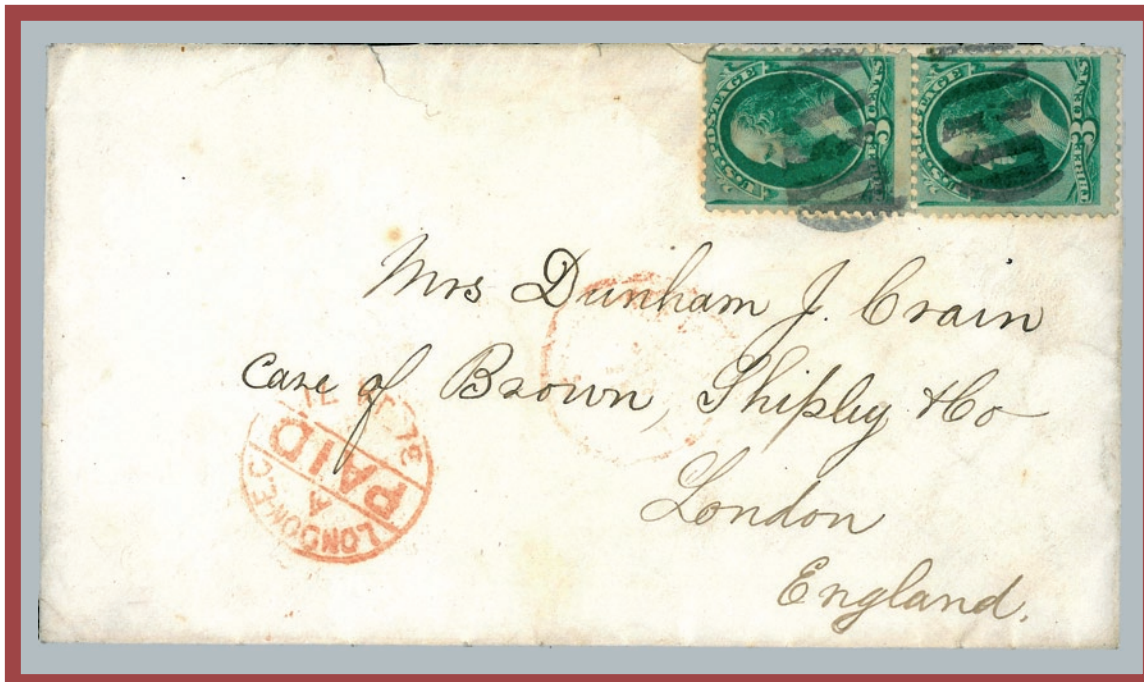 U.S. POSTAGE
THREE 3 CENTS
U.S. POSTAGE
THREE 3 CENTS
Mrs Dunham J. Crain
Care of Brown, Shipley & Co
London
England.
LONDON E.C
A
PAID